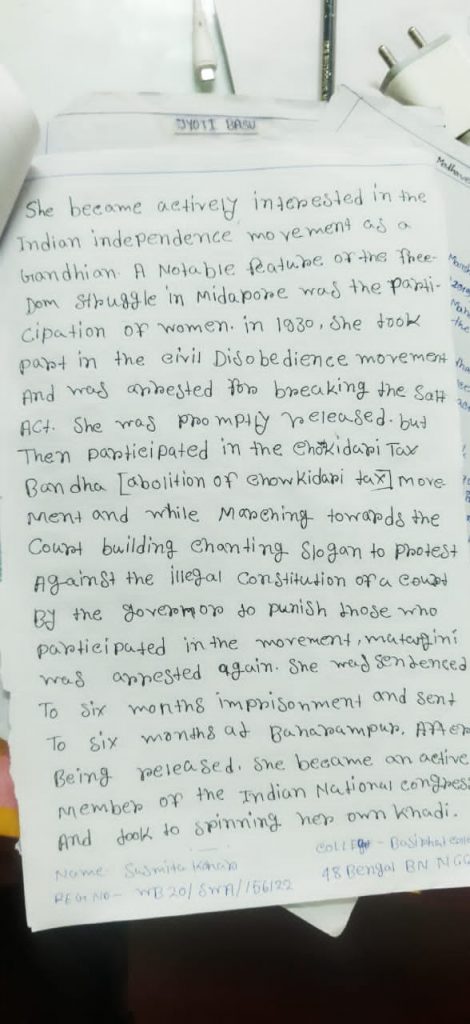 JYOTI BASU
She became actively interested in the
Indian independence movement as a
Gandhian. A Notable feature of the free-
Dom struggle in Midapore was the parti-
cipation of women. in 1930, she took
part in the civil Disobedience movement
And was arrested for breaking the Salt
ACT. She was promptly released. but
Then participated in the chokidari Tax
Bandha [abolition of chowkidari tax] move-
ment and while Marching towards the
Court building chanting slogan to protest
Against the illegal Constitution of a court
By the governor to punish those who
participated in the movement, matangini
was arrested again. She was sentenced
To six months imprisonment and sent
To six months at Baharampur. After
Being released. she became an active
Member of the Indian National congress
And took to spinning her own khadi.
Name Susmita
COLLEGE - Basirhat
REG NO - WB20/SWA/156122
48 Bengal BN NCC